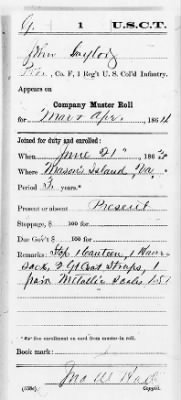 G. 1 U.S.C.T.
John Gaylord
Pvt., Co. F, 1 Reg't U. S. Col'd Infantry.
Appears on
Company Muster Roll
for Mar & Apr., 1864
Joined for duty and enrolled:
When June 21", 1863
Where Mason's Island, Va.
Period 3 years.*
Present or absent Present
Stoppage, $ 100 for
Due Gov't $ 100 for
Remarks: Stop 1 Canteen, 1 Haver-
sack, 2 Gt Coat Straps, 1
pair Metallic Scales
*See enrollment on card from muster-in roll.
Book mark:
(358c) Copyist.